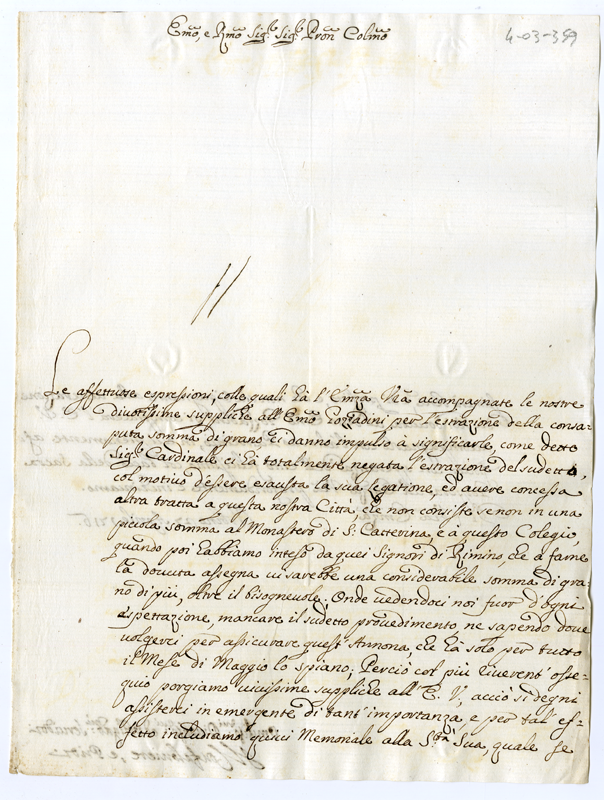 Emo, e Rmo Sigr. Sigr. Pron Colmo
4-03-359
Le affettuose espressioni, colle quali hà l'Emza Vra accompagnate le nostre
divotissime suppliche all'Emo Gozzadini per l'estrazione della consa-
puta somma di grano ci danno impulso à significarle, come detto
Sigr. Cardinale ci hà totalmente negata l'estrazione del sudetto,
col motivo d'essere esausta la sua legatione, ed avere concessa
altra tratta a questa nostra Città, che non consiste se non in una
piccola somma al Monastero di S. Catterina, e à questo Colegio,
quando poi habbiamo inteso da quei Signori di Rimino, che à farne
la dovuta assegna vi sarebbe una considerabile somma di gra-
no di più, oltre il bisognevole. Onde vedendoci noi fuor d'ogni
espettazione, mancare il sudetto provedimento ne sapendo dove
volgerci per assicurare quest'Annona, che hà solo per tutto
il Mese di Maggio lo spiano; Perciò col più riverent'osse-
quio porgiamo vivissime suppliche all'E. V, acciò si degni
assisterci in emergente di tant'importanza, e per tal'ef-
fetto includiamo quivi Memoriale alla Sta Sua, quale se